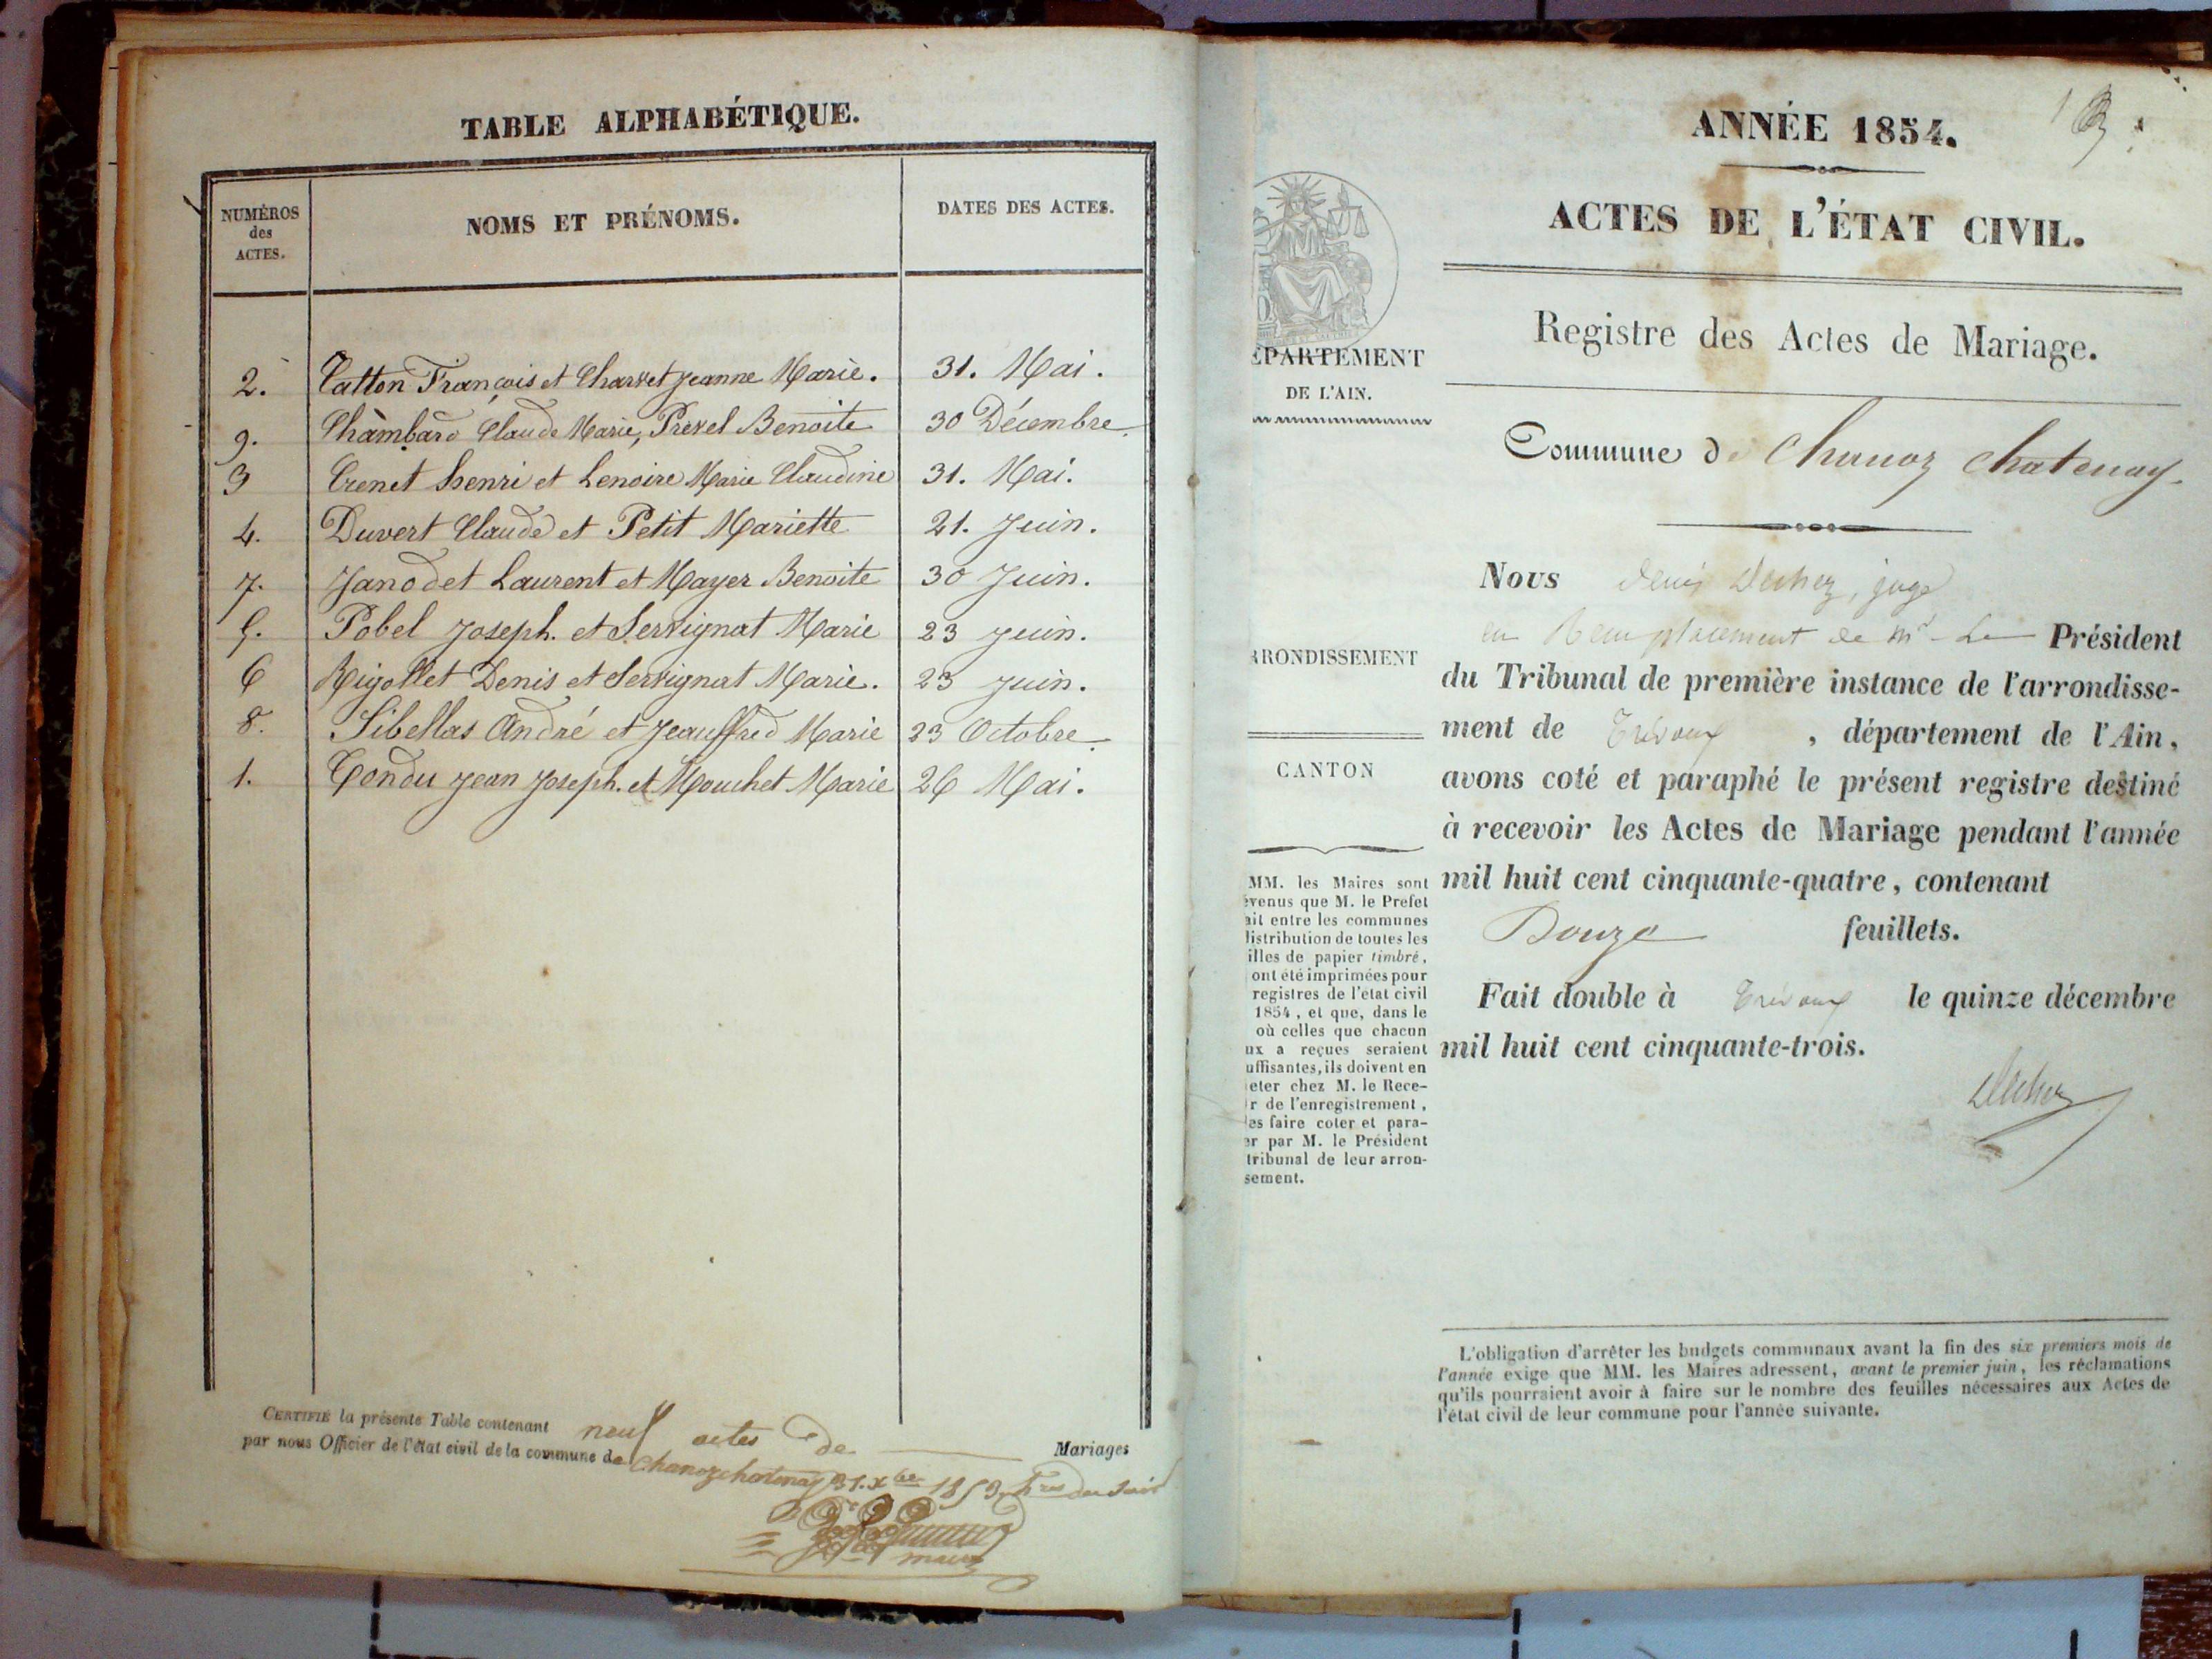 TABLE ALPHABÉTIQUE.
NUMÉROS
des
ACTES.
NOMS ET PRÉNOMS.
DATES DES ACTES.
2. Catton François et Charvet Jeanne Marie. 31. Mai.
9. Chambard Claude Marie, Prevel Benoite 30 Décembre.
3 Crenet henri et Lenoire Marie Claudine 31. Mai.
4. Duvert Claude et Petit Mariette 21. Juin.
7. Janodet Laurent et Mayer Benoite 30 Juin.
5. Pobel Joseph. et Servignat Marie 23 Juin.
6 Rigollet Denis et Servignat Marie. 23 Juin.
8. Sibellas André et Jeauffred Marie 23 Octobre.
1. Tondu Jean Joseph. et Mouchet Marie 26 Mai.
CERTIFIÉ la présente Table contenant neuf actes de Mariages
par nous Officier de l'état civil de la commune de Chanoz chatenay 31. Xbre 1853
maire
ANNÉE 1854.
ACTES DE L'ÉTAT CIVIL.
Registre des Actes de Mariage.
ÉPARTEMENT
DE L'AIN.
Commune de Chanoz chatenay.
Nous Denis Dechez, juge
en Remplacement de Mr Le Président
du Tribunal de première instance de l'arrondisse-
ment de Trévoux, département de l'Ain,
avons coté et paraphé le présent registre destiné
à recevoir les Actes de Mariage pendant l'année
mil huit cent cinquante-quatre, contenant
Douze feuillets.
Fait double à Trévoux le quinze décembre
mil huit cent cinquante-trois.
Dechez
RRONDISSEMENT
CANTON
MM. les Maires sont
évenus que M. le Préfet
ait entre les communes
distribution de toutes les
illes de papier timbré,
ont été imprimées pour
registres de l'état civil
1854, et que, dans le
où celles que chacun
ux a reçues seraient
uffisantes, ils doivent en
eter chez M. le Rece-
r de l'enregistrement,
les faire coter et para-
er par M. le Président
tribunal de leur arron-
sement.
L'obligation d'arrêter les budgets communaux avant la fin des six premiers mois de
l'année exige que MM. les Maires adressent, avant le premier juin, les réclamations
qu'ils pourraient avoir à faire sur le nombre des feuilles nécessaires aux Actes de
l'état civil de leur commune pour l'année suivante.